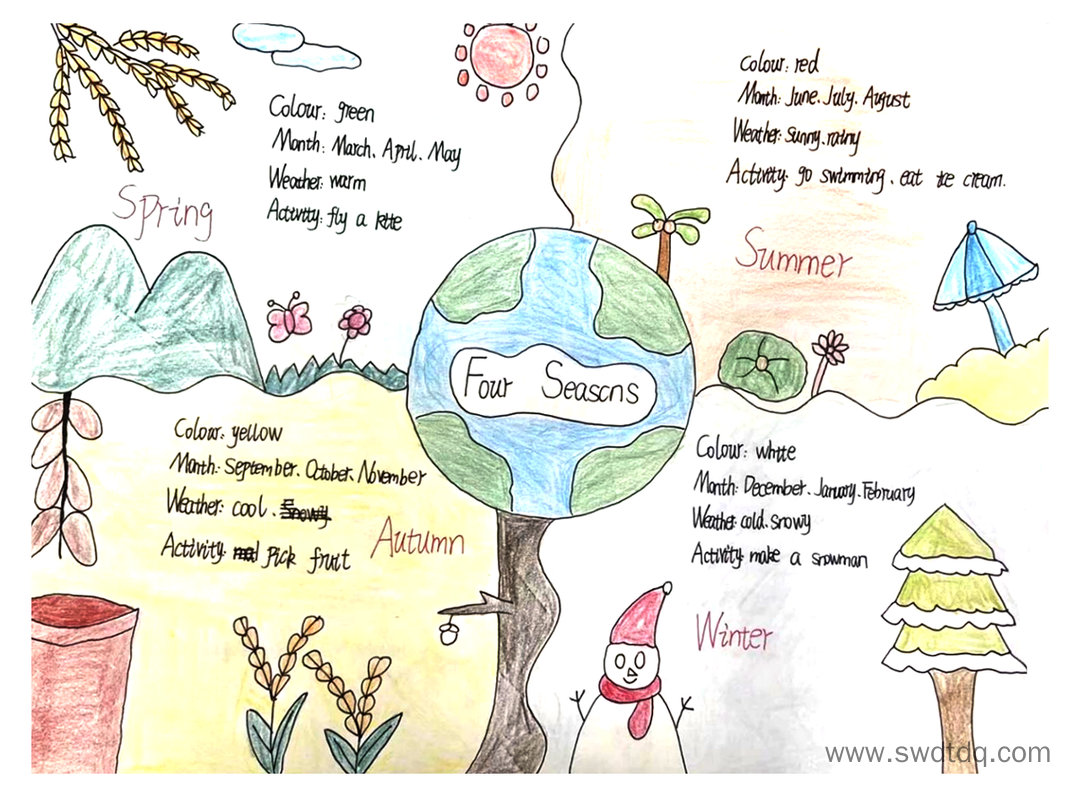 Spring
Colour: green
Month: March、April、May
Weather: warm
Activity: fly a kite
Summer
Colour: red
Month: June、July、August
Weather: sunny、rainy
Activity: go swimming、eat ice cream.
Four Seasons
Autumn
Colour: yellow
Month: September、October、November
Weather: cool、
Activity: pick fruit
Winter
Colour: white
Month: December、January、February
Weather: cold、snowy
Activity: make a snowman
www.swdtdq.com